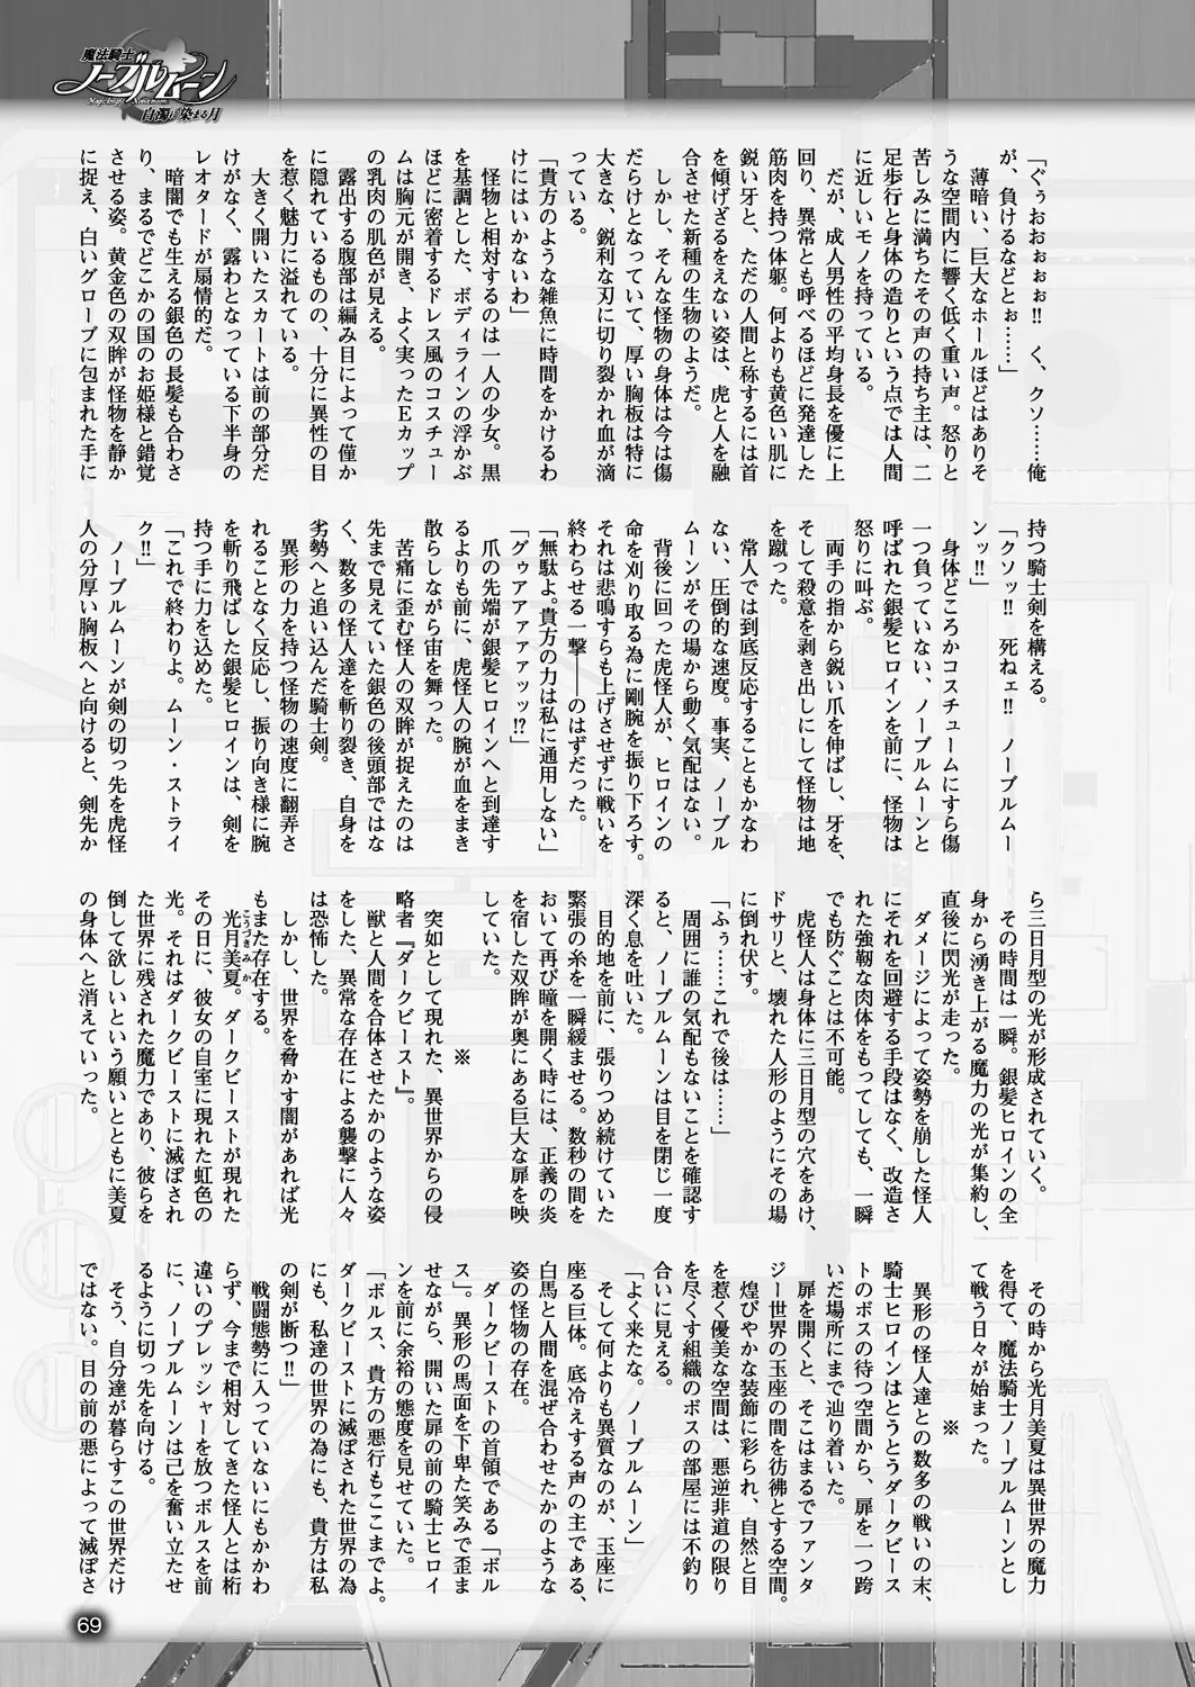 魔法騎士
ノーブルムーン
白濁に染まる月
「ぐぅおおぉぉぉ!! く、クソ……俺
が、負けるなどとぉ……」
薄暗い、巨大なホールほどはありそ
うな空間内に響く低く重い声。怒りと
苦しみに満ちたその声の持ち主は、二
足歩行と身体の造りという点では人間
に近しいモノを持っている。
だが、成人男性の平均身長を優に上
回り、異常とも呼べるほどに発達した
筋肉を持つ体躯。何よりも黄色い肌に
鋭い牙と、ただの人間と称するには首
を傾げざるをえない姿は、虎と人を融
合させた新種の生物のようだ。
しかし、そんな怪物の身体は今は傷
だらけとなっていて、厚い胸板は特に
大きな、鋭利な刃に切り裂かれ血が滴
っている。
「貴方のような雑魚に時間をかけるわ
けにはいかないわ」
怪物と相対するのは一人の少女。黒
を基調とした、ボディラインの浮かぶ
ほどに密着するドレス風のコスチュー
ムは胸元が開き、よく実ったEカップ
の乳肉の肌色が見える。
露出する腹部は編み目によって僅か
に隠れているものの、十分に異性の目
を惹く魅力に溢れている。
大きく開いたスカートは前の部分だ
けがなく、露わとなっている下半身の
レオタードが扇情的だ。
暗闇でも生える銀色の長髪も合わさ
り、まるでどこかの国のお姫様と錯覚
させる姿。黄金色の双眸が怪物を静か
に捉え、白いグローブに包まれた手に
持つ騎士剣を構える。
「クソッ!! 死ねェ!! ノーブルムー
ンッ!!」
身体どころかコスチュームにすら傷
一つ負っていない、ノーブルムーンと
呼ばれた銀髪ヒロインを前に、怪物は
怒りに叫ぶ。
両手の指から鋭い爪を伸ばし、牙を、
そして殺意を剥き出しにして怪物は地
を蹴った。
常人では到底反応することもかなわ
ない、圧倒的な速度。事実、ノーブル
ムーンがその場から動く気配はない。
背後に回った虎怪人が、ヒロインの
命を刈り取る為に剛腕を振り下ろす。
それは悲鳴すらも上げさせずに戦いを
終わらせる一撃――のはずだった。
「無駄よ。貴方の力は私に通用しない」
「グゥアアァァァッッ!?」
爪の先端が銀髪ヒロインへと到達す
るよりも前に、虎怪人の腕が血をまき
散らしながら宙を舞った。
苦痛に歪む怪人の双眸が捉えたのは
先まで見えていた銀色の後頭部ではな
く、数多の怪人達を斬り裂き、自身を
劣勢へと追い込んだ騎士剣。
異形の力を持つ怪物の速度に翻弄さ
れることなく反応し、振り向き様に腕
を斬り飛ばした銀髪ヒロインは、剣を
持つ手に力を込めた。
「これで終わりよ。ムーン・ストライ
ク!!」
ノーブルムーンが剣の切っ先を虎怪
人の分厚い胸板へと向けると、剣先か
ら三日月型の光が形成されていく。
その時間は一瞬。銀髪ヒロインの全
身から湧き上がる魔力の光が集約し、
直後に閃光が走った。
ダメージによって姿勢を崩した怪人
にそれを回避する手段はなく、改造さ
れた強靭な肉体をもってしても、一瞬
でも防ぐことは不可能。
虎怪人は身体に三日月型の穴をあけ、
ドサリと、壊れた人形のようにその場
に倒れ伏す。
「ふぅ……これで後は……」
周囲に誰の気配もないことを確認す
ると、ノーブルムーンは目を閉じ一度
深く息を吐いた。
目的地を前に、張りつめ続けていた
緊張の糸を一瞬緩ませる。数秒の間を
おいて再び瞳を開く時には、正義の炎
を宿した双眸が奥にある巨大な扉を映
していた。
※
突如として現れた、異世界からの侵
略者『ダークビースト』。
獣と人間を合体させたかのような姿
をした、異常な存在による襲撃に人々
は恐怖した。
しかし、世界を脅かす闇があれば光
もまた存在する。
光月美夏。ダークビーストが現れた
こうづきみか
その日に、彼女の自室に現れた虹色の
光。それはダークビーストに滅ぼされ
た世界に残された魔力であり、彼らを
倒して欲しいという願いとともに美夏
の身体へと消えていった。
その時から光月美夏は異世界の魔力
を得て、魔法騎士ノーブルムーンとし
て戦う日々が始まった。
※
異形の怪人達との数多の戦いの末、
騎士ヒロインはとうとうダークビース
トのボスの待つ空間から、扉を一つ跨
いだ場所にまで辿り着いた。
扉を開くと、そこはまるでファンタ
ジー世界の玉座の間を彷彿とする空間。
煌びやかな装飾に彩られ、自然と目
を惹く優美な空間は、悪逆非道の限り
を尽くす組織のボスの部屋には不釣り
合いに見える。
「よく来たな。ノーブルムーン」
そして何よりも異質なのが、玉座に
座る巨体。底冷えする声の主である、
白馬と人間を混ぜ合わせたかのような
姿の怪物の存在。
ダークビーストの首領である「ボル
ス」。異形の馬面を下卑た笑みで歪ま
せながら、開いた扉の前の騎士ヒロイ
ンを前に余裕の態度を見せていた。
「ボルス、貴方の悪行もここまでよ。
ダークビーストに滅ぼされた世界の為
にも、私達の世界の為にも、貴方は私
の剣が断つ!!」
戦闘態勢に入っていないにもかかわ
らず、今まで相対してきた怪人とは桁
違いのプレッシャーを放つボルスを前
に、ノーブルムーンは己を奮い立たせ
るように切っ先を向ける。
そう、自分達が暮らすこの世界だけ
ではない。目の前の悪によって滅ぼさ
69